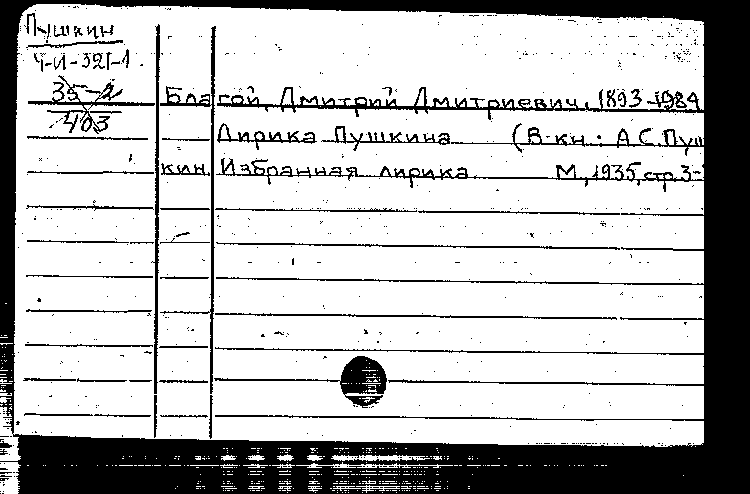 Пушкин
Ч-И-321-1.
35-2
403
Благой, Дмитрий Дмитриевич. 1893-1984
Лирика Пушкина (В кн.: А.С.Пуш
кин. Избранная лирика. М., 1935, стр. 3-